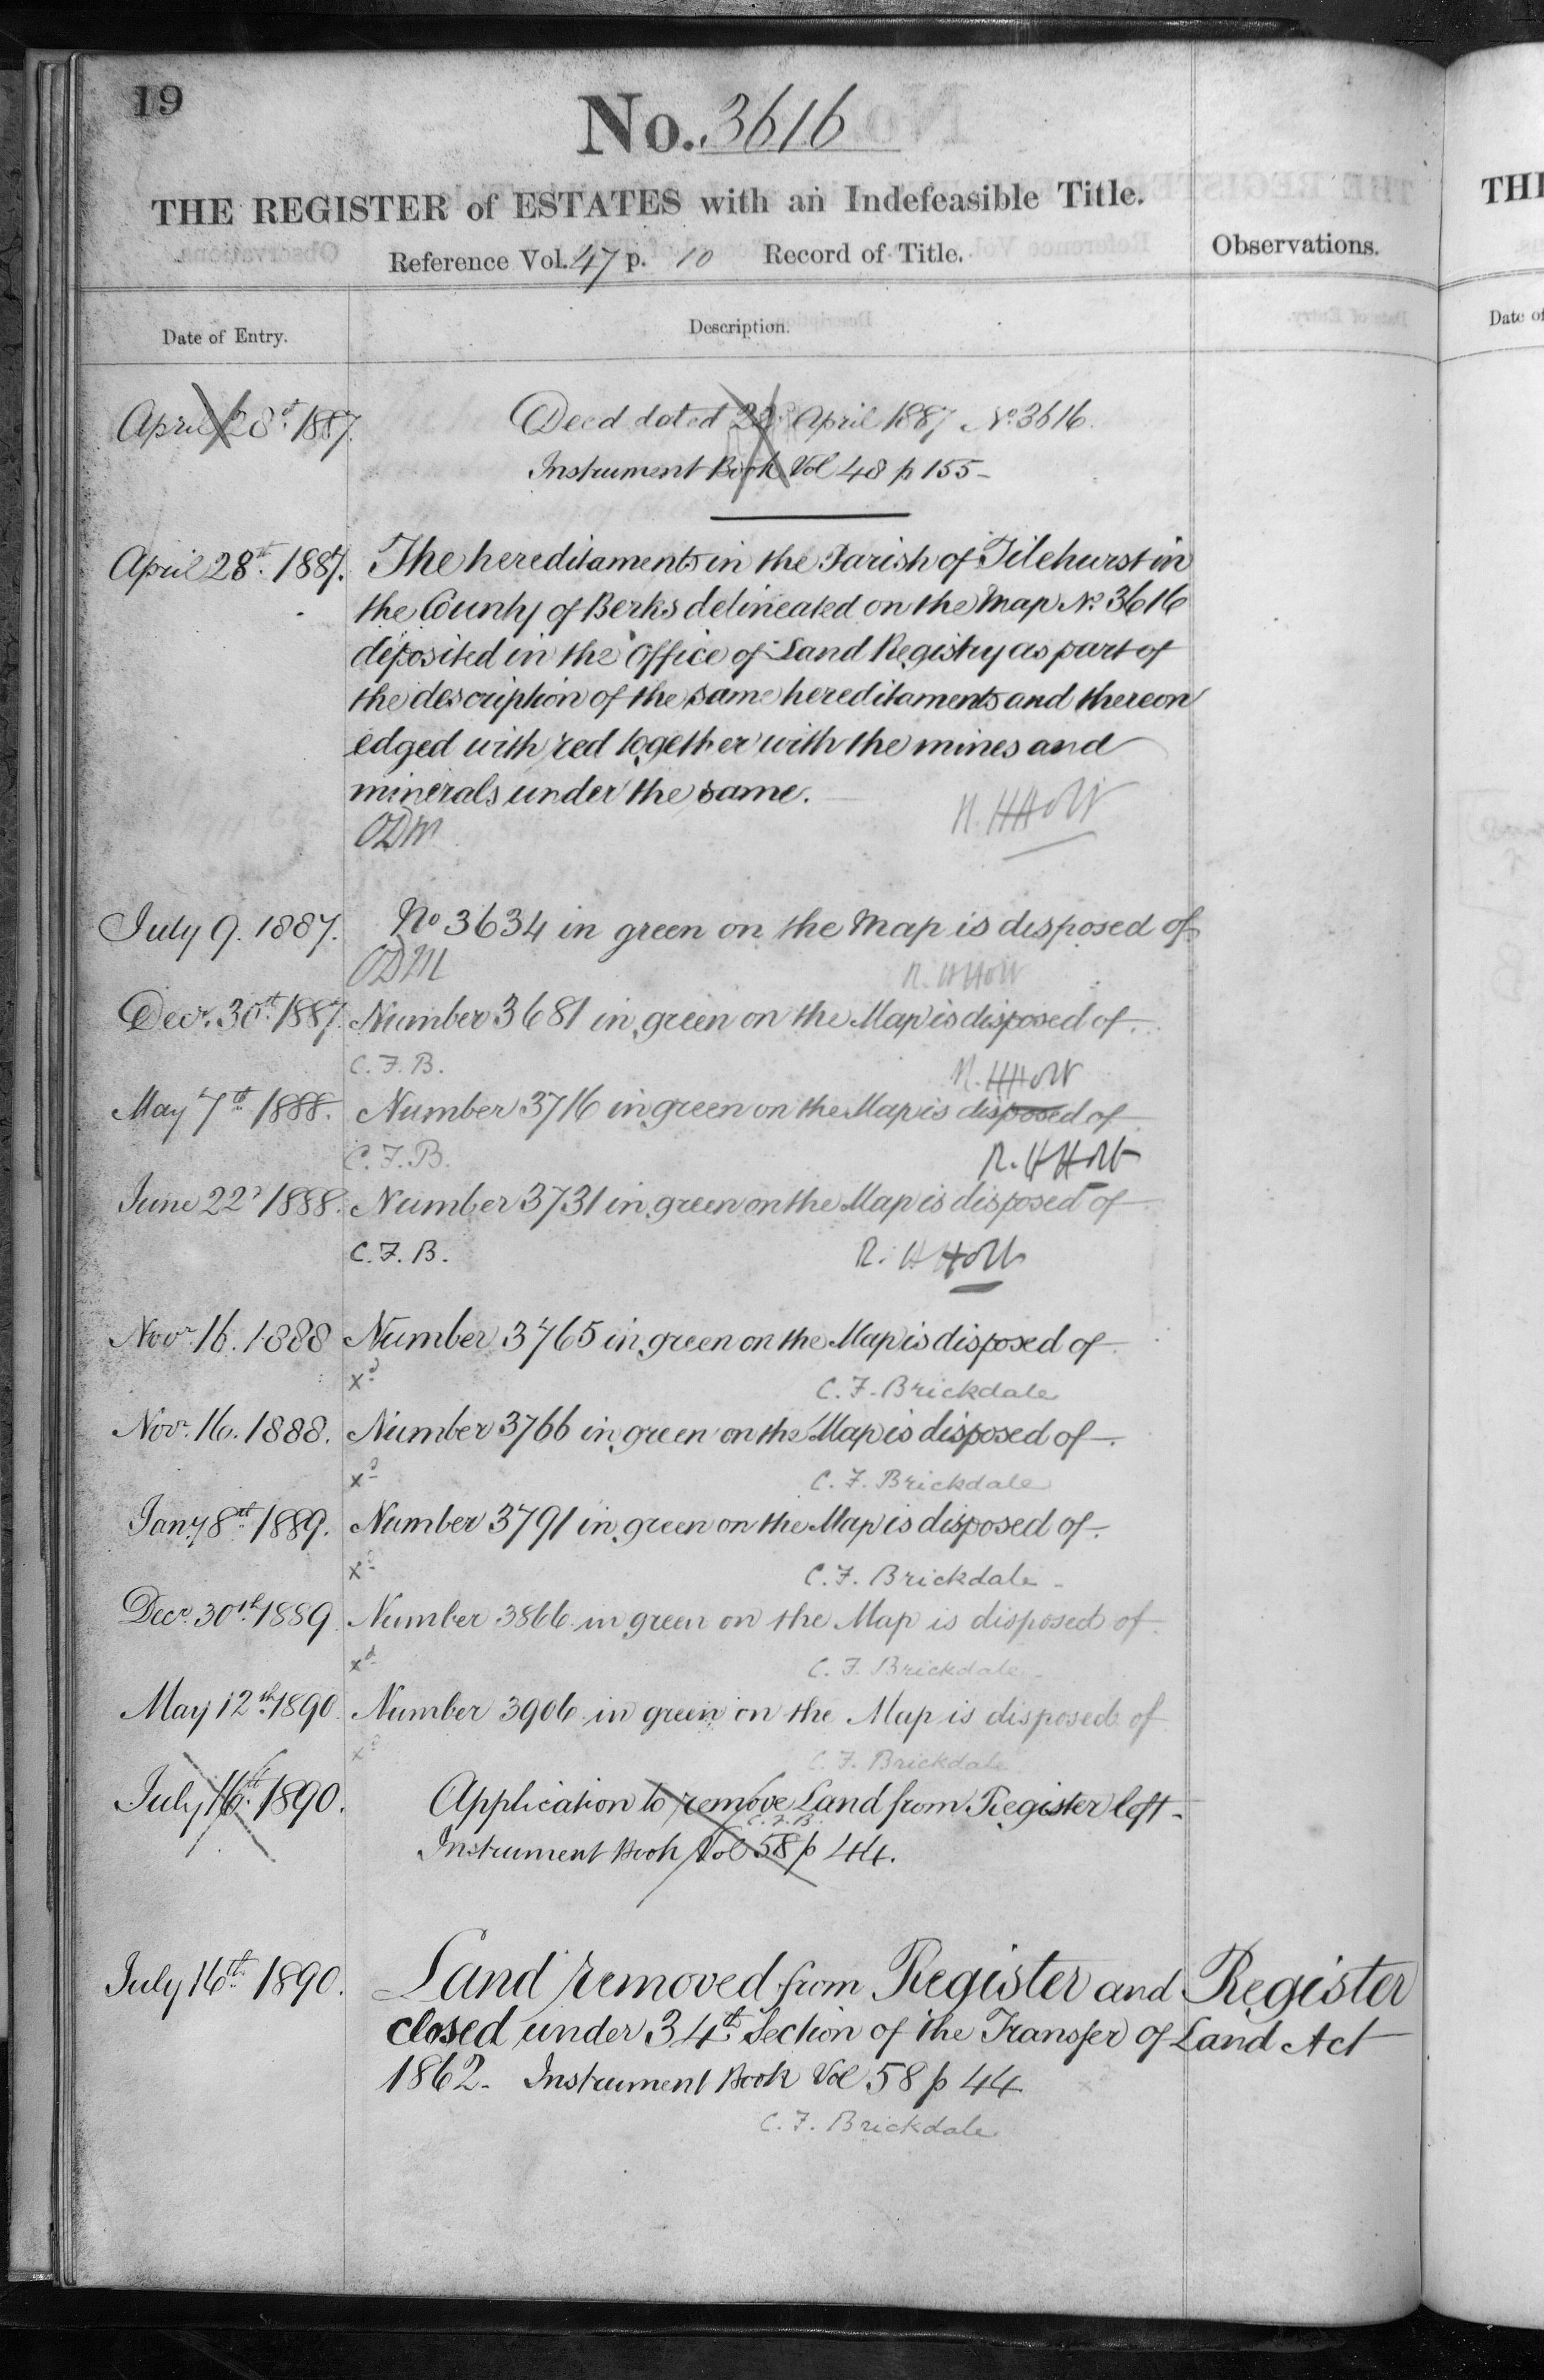 19
No. 3616
THE REGISTER of ESTATES with an Indefeasible Title.
Reference Vol. 47 p. 10 Record of Title.
Observations.
Date of Entry.
Description.
April 28th 1887. Deed dated 22 April 1887 No. 3616.
Instrument Book Vol 48 p 155-
April 28th 1887. The hereditaments in the Parish of Tilehurst in
the County of Berks delineated on the Map No. 3616
deposited in the Office of Land Registry as part of
the description of the same hereditaments and thereon
edged with red together with the mines and
minerals under the same.
ODM R. H Holt
July 9. 1887. No 3634 in green on the Map is disposed of
ODM R. H Holt
Decr. 30th 1887. Number 3681 in green on the Map is disposed of.
C. F. B. R. H Holt
May 7th 1888. Number 3716 in green on the Map is disposed of
C. F. B. R. H Holt
June 22d 1888. Number 3731 in green on the Map is disposed of
C. F. B. R. H Holt
Novr. 16. 1888 Number 3765 in green on the Map is disposed of.
xd C. F. Brickdale
Novr. 16. 1888. Number 3766 in green on the Map is disposed of.
xd C. F. Brickdale
Jany 8th 1889. Number 3791 in green on the Map is disposed of.
xd C. F. Brickdale -
Decr. 30th 1889 Number 3866 in green on the Map is disposed of.
xd C. F. Brickdale -
May 12th 1890. Number 3906 in green on the Map is disposed of
xd C. F. Brickdale
July 16th 1890. Application to remove Land from Register left -
C. F. B.
Instrument Book Vol 58 p 44.
July 16th 1890. Land removed from Register and Register
closed under 34th Section of the Transfer of Land Act
1862. Instrument Book Vol 58 p 44
C. F. Brickdale
THE
Date of